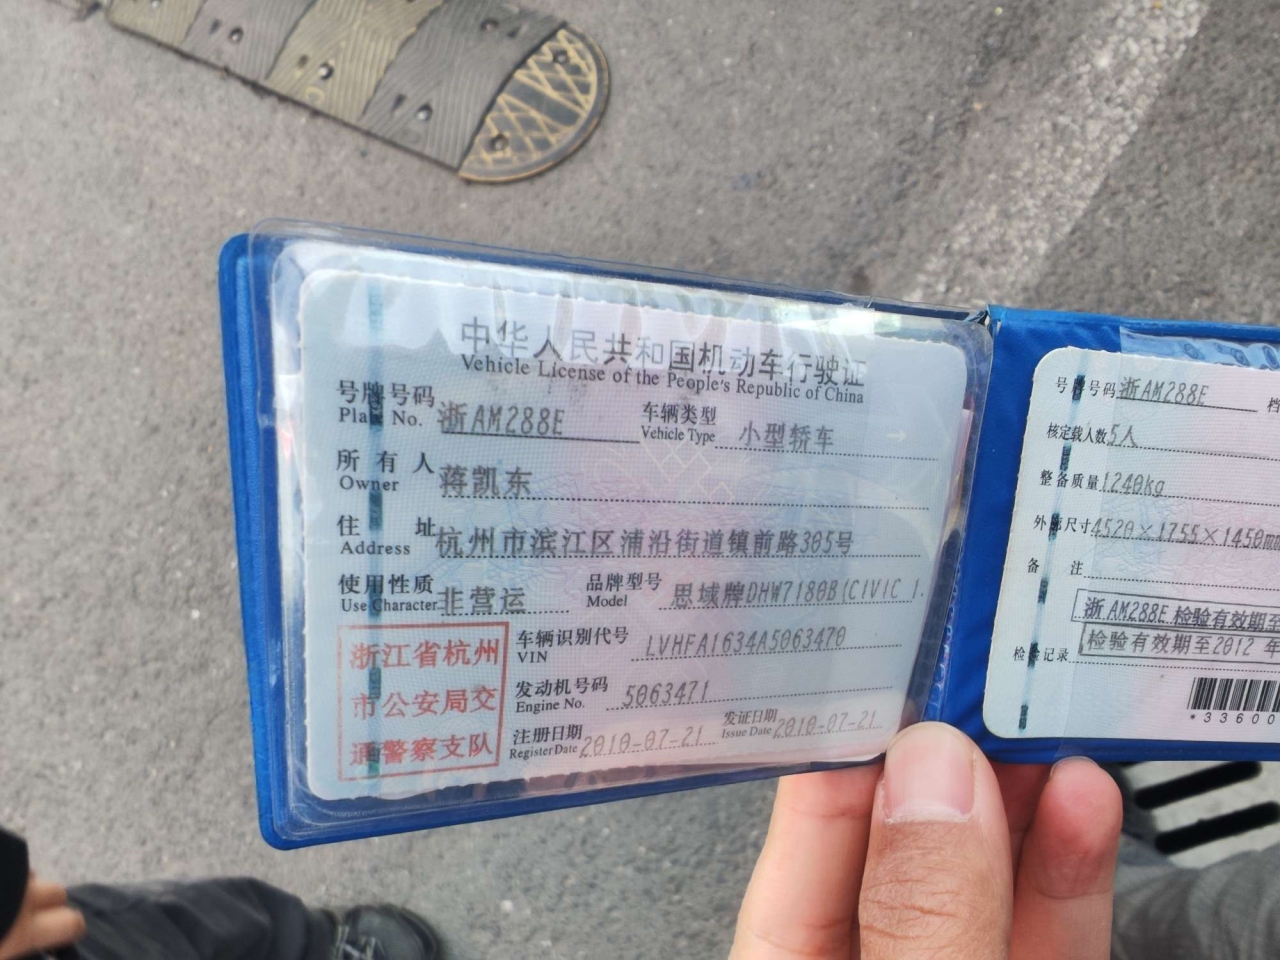 中华人民共和国机动车行驶证
Vehicle License of the People's Republic of China
号牌号码 浙AM288E 车辆类型 小型轿车
Plate No. Vehicle Type
所有人 蒋凯东
Owner
住址 杭州市滨江区浦沿街道镇前路305号
Address
使用性质 非营运 品牌型号 思域牌DHW7180B(CIVIC 1.
Use Character Model
浙江省杭州
市公安局交
通警察支队
车辆识别代号 LVHFA1634A5063470
VIN
发动机号码 5063471
Engine No.
注册日期 2010-07-21 发证日期 2010-07-21
Register Date Issue Date
号牌号码 浙AM288E 档
核定载人数 5人
整备质量 1240kg
外廓尺寸 4520×1755×1450mm
备注
浙AM288E 检验有效期至
检验有效期至2012 年
检验记录
*33600